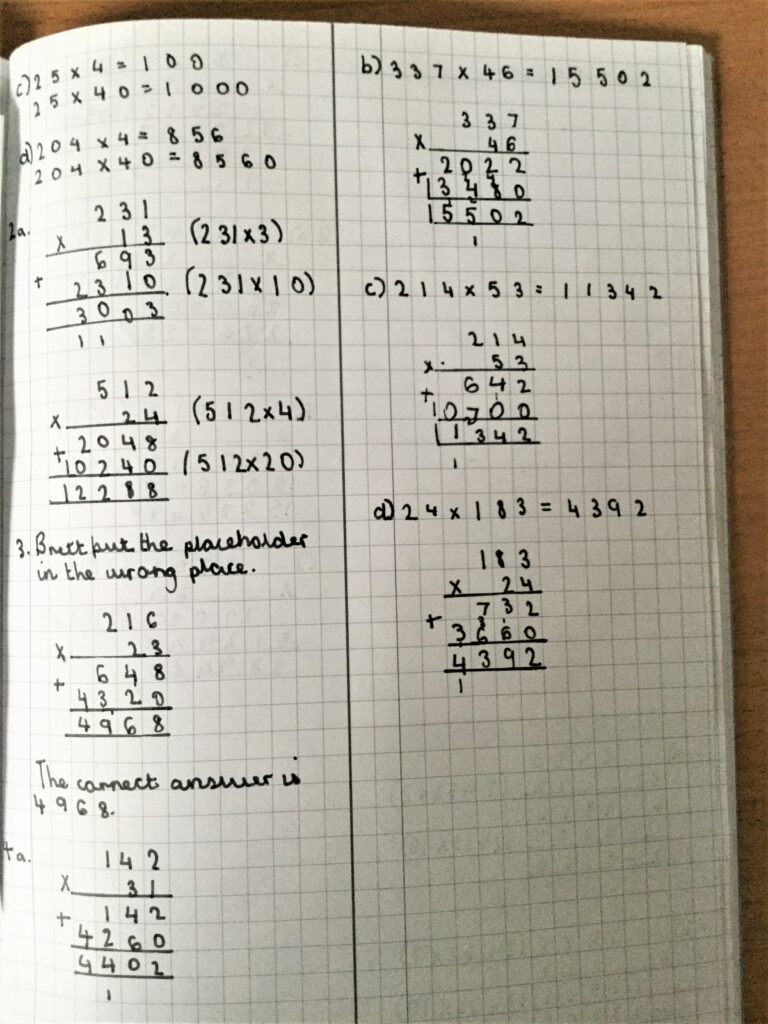 c) 25 x 4 = 100
25 x 40 = 1000
d) 204 x 4 = 856
204 x 40 = 8560
2a. 231
x 13 (231x3)
693
+ 2310 (231x10)
3003
11
512
x 24 (512x4)
+ 2048
10240 (512x20)
12288
3. Brett put the placeholder
in the wrong place.
216
x 23
+ 648
4320
4968
The correct answer is
4968.
4a. 142
x 31
+ 142
4260
4402
1
b) 337 x 46 = 15502
337
x 46
+ 2022
13480
15502
1
c) 214 x 53 = 11342
214
x 53
+ 642
10700
11342
1
d) 24 x 183 = 4392
183
x 24
+ 732
3660
4392
1